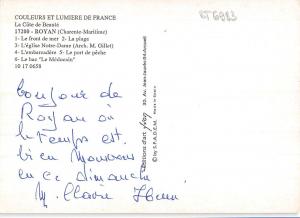 COULEURS ET LUMIERE DE FRANCE
La Côte de Beauté
17200 - ROYAN (Charente-Maritime)
1 - Le front de mer 2 - La plage
3 - L'église Notre-Dame (Arch. M. Gillet)
4 - L'embarcadère 5 - Le port de pêche
6 - Le bac "Le Médocain"
10 17 0658
Bonjour de
Royan où
le temps est
bien mauvais
en ce dimanche
M. Claire
Editions d'art yvon
20, Av. Jean-Jaurès/94-Arcueil
© by S.P.A.D.E.M.